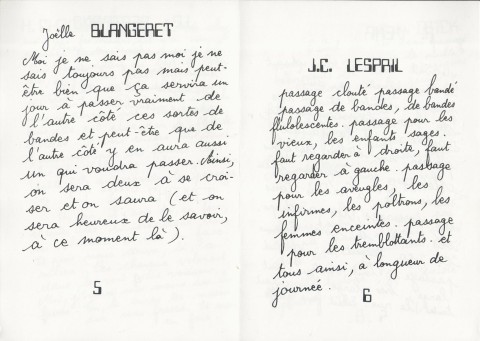 Joëlle BLANGERET
Moi je ne sais pas moi je ne
sais toujours pas mais peut-
être bien que ça servira un
jour à passer vraiment de
l'autre côté ces sortes de
bandes et peut-être que de
l'autre côté y en aura aussi
un qui voudra passer. Ainsi,
on sera deux à se croi-
ser et on saura (et on
sera heureux de le savoir,
à ce moment là).
5
J.C. LESPRIL
passage clouté passage bandé
passage de bandes, de bandes
flulolescentes. passage pour les
vieux, les enfants sages.
faut regarder à droite, faut
regarder à gauche. passage
pour les aveugles, les
infirmes, les poltrons, les
femmes enceintes. passage
pour les tremblottants. et
tous ainsi, à longueur de
journée.
6